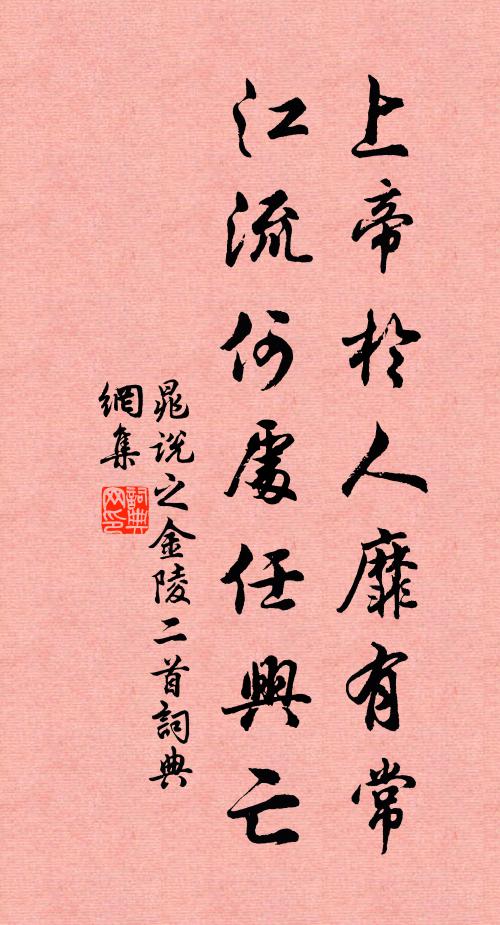 上帝於人靡有常
江流何處任興亡
晁说之金陵二首詞典
網集
詞典网印